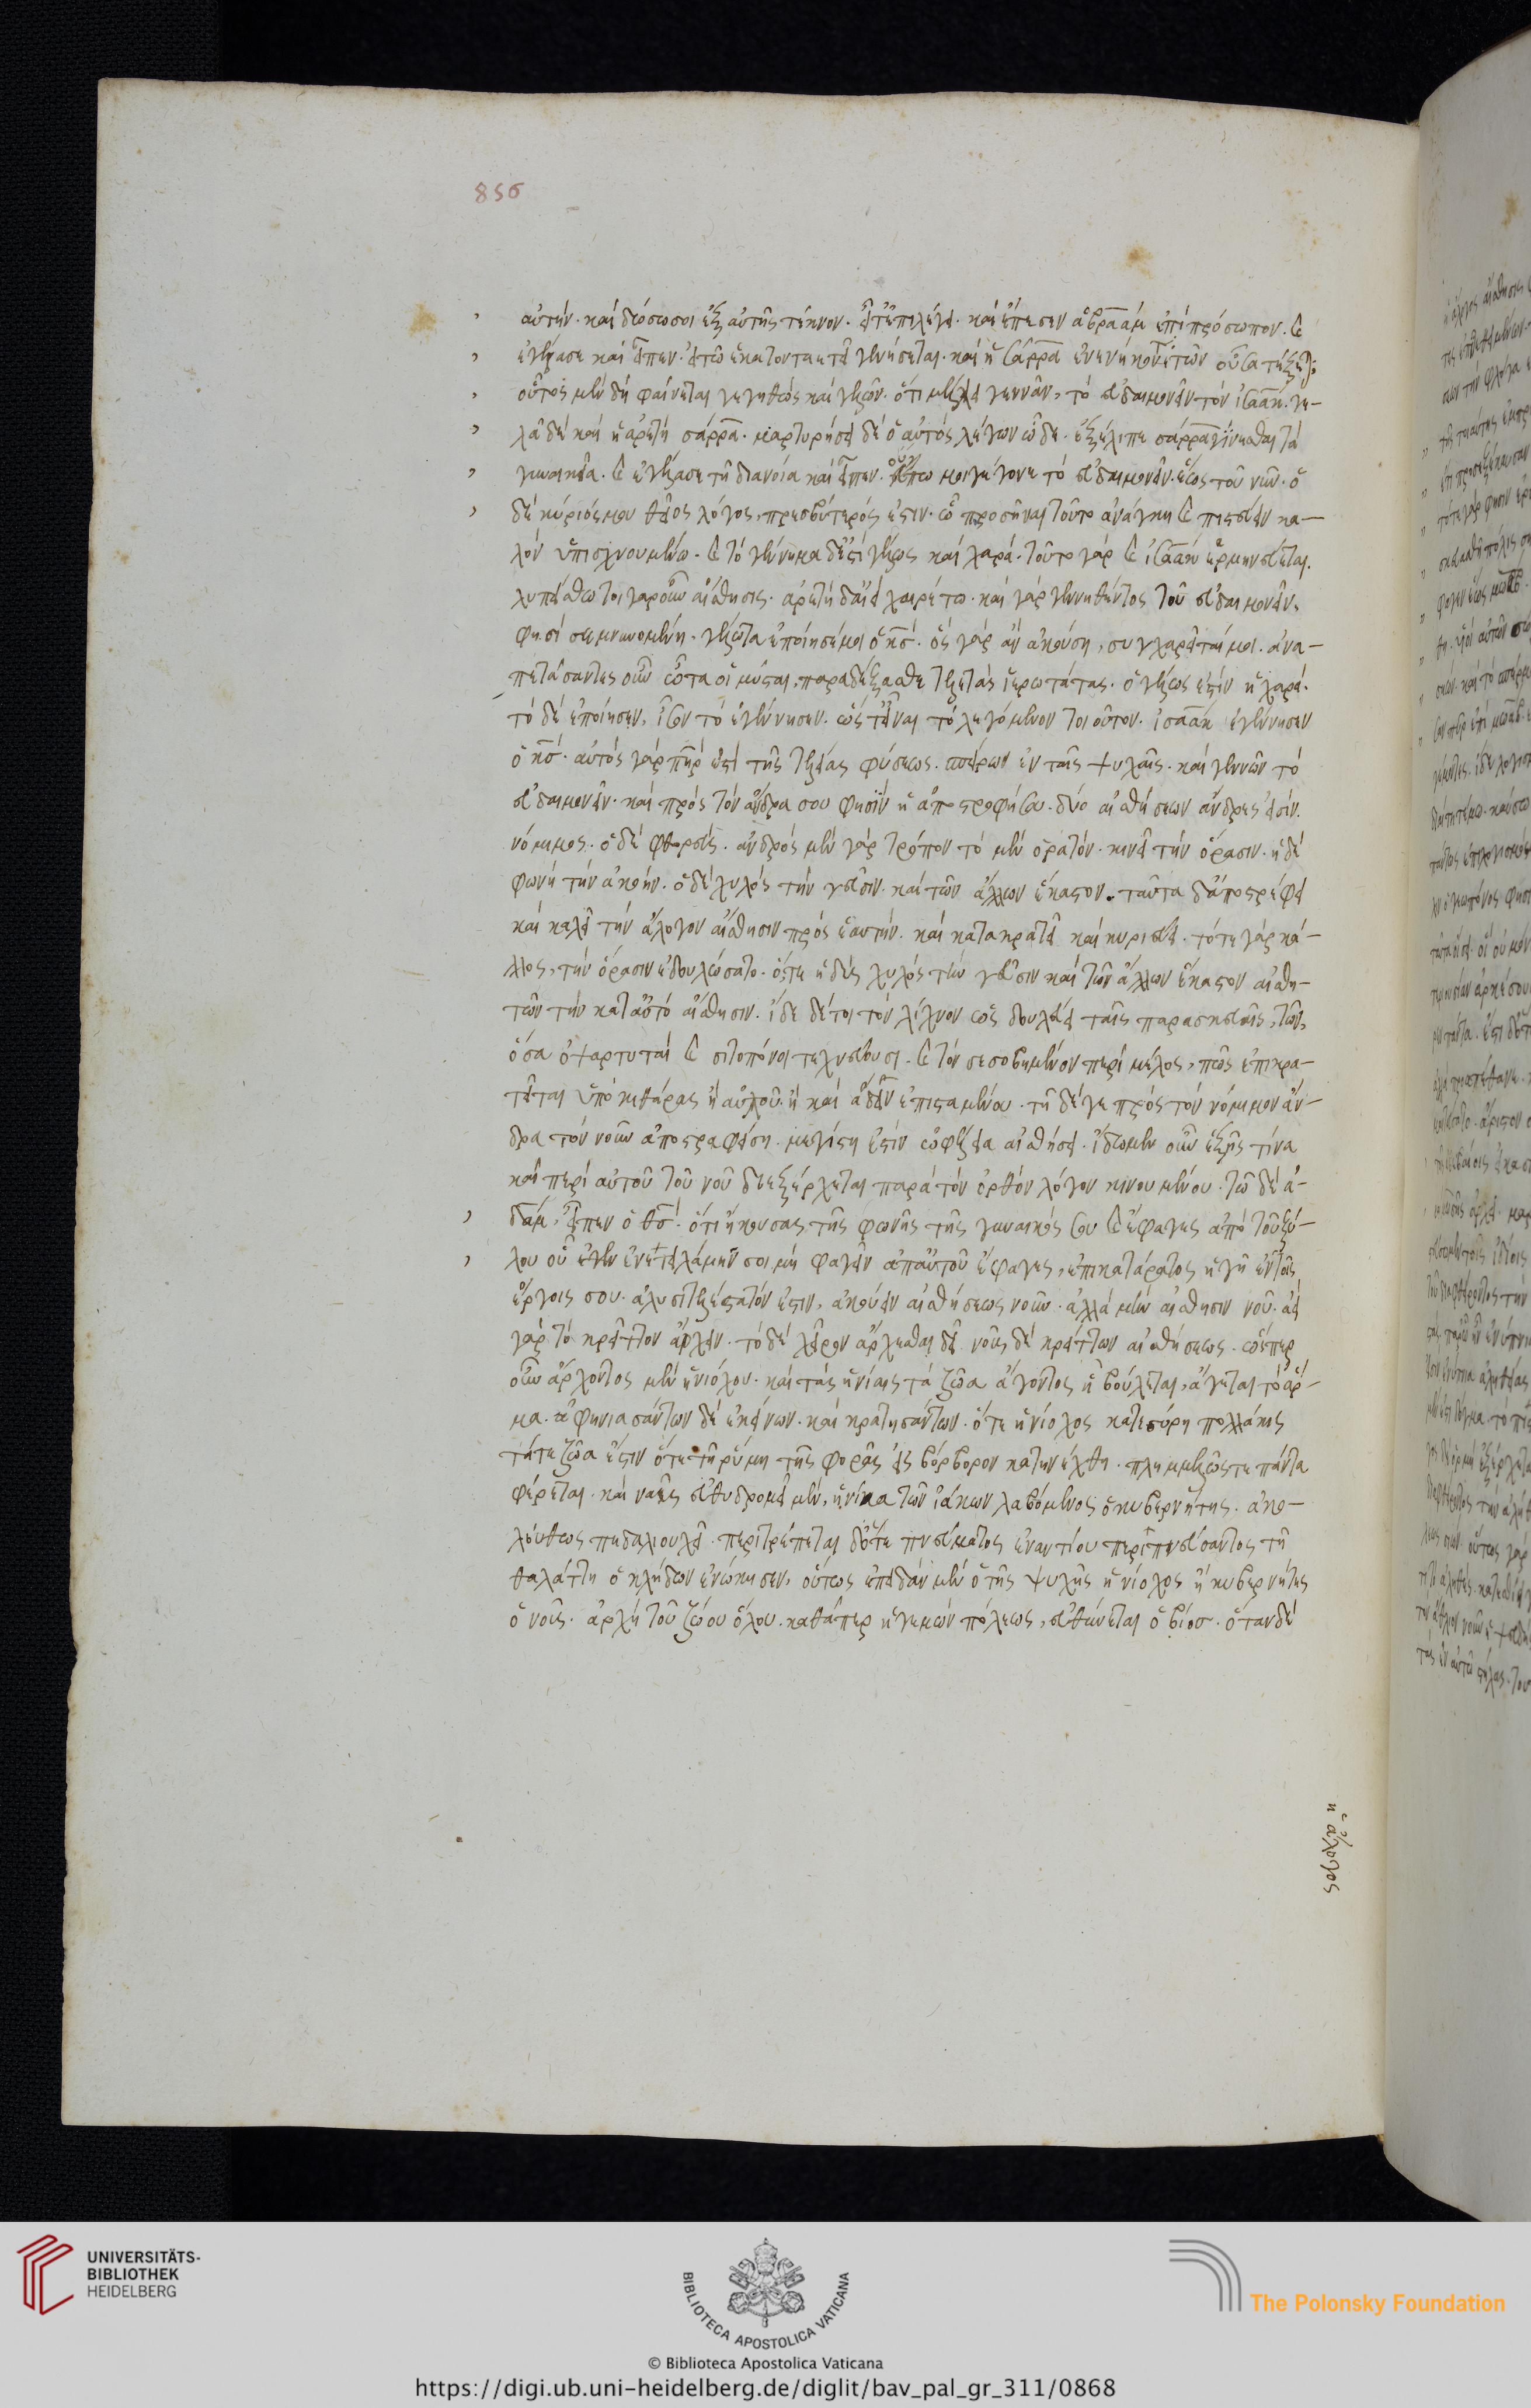 856
αὐτὴν· καὶ δώσω σοι ἐξ αὐτῆς τέκνον. εἶτ' ἐπιλέγει· καὶ ἔπεσεν ἀβραὰμ ἐπὶ πρόσωπον. καὶ
ἐγέλασε καὶ εἶπεν· εἰ τῶ ἑκατονταετεῖ γενήσεται· καὶ ἡ σάρρα ἐνενήκοντ' ἐτῶν οὖσα τέξεται;
οὗτος μὲν δὴ φαίνεται γεγηθὼς καὶ γελῶν. ὅτι μέλλει γεννᾶν, τὸ εὐδαιμονεῖν τὸν ἰσαάκ. γε-
λᾶ δὲ καὶ ἡ ἀρετὴ σάρρα· μαρτυρήσει δὲ ὁ αὐτὸς λέγων ὧδε· ἐξέλιπε σάρρα γίνεσθαι τὰ
γυναικεῖα. καὶ ἐγέλασε τῆ διανοία καὶ εἶπεν· οὔπω μοι γέγονε τὸ εὐδαιμονεῖν ἕως τοῦ νῦν· ὁ
δὲ κύριός μου θεῖος λόγος, πρεσβύτερός ἐστιν· ᾧ προσεῖναι τοῦτο ἀνάγκη καὶ πιστεύειν κα-
λὸν ὑπισχνουμένω. καὶ τὸ γέννημα δ' ἐστὶ γέλως καὶ χαρά. τοῦτο γὰρ καὶ ἰσαὰκ ἑρμηνεύεται.
λυπείσθω τοιγαροῦν αἴσθησις· ἀρετὴ δ' ἀεὶ χαιρέτω. καὶ γὰρ γεννηθέντος τοῦ εὐδαιμονεῖν,
φησὶ σεμνυνομένη· γέλωτα ἐποίησέ μοι ὁ κς. ὃς γὰρ ἂν ἀκούση, συγχαρεῖταί μοι. ἀνα-
πετάσαντες οὖν ὦτα οἱ μύσται, παραδέξασθε τελετὰς ἱερωτάτας. ὁ γέλως ἐστὶν ἡ χαρά·
τὸ δὲ ἐποίησεν, ἴσον τὸ ἐγέννησεν. ὥστ' εἶναι τὸ λεγόμενον τοιοῦτον· ἰσαὰκ ἐγέννησεν
ὁ κς. αὐτὸς γὰρ πηρ ἐστὶ τῆς τελείας φύσεως. σπείρων ἐν ταῖς ψυχαῖς· καὶ γεννῶν τὸ
εὐδαιμονεῖν. καὶ πρὸς τὸν ἄνδρα σου φησὶν ἡ ἀποστροφή σου· δύο αἰσθήσεων ἄνδρες εἰσίν·
νόμιμος· ὁ δὲ φθορεύς. ἀνδρὸς μὲν γὰρ τρόπον τὸ μὲν ὁρατὸν κινεῖ τὴν ὅρασιν· ἡ δὲ
φωνὴ τὴν ἀκοήν. ὁ δὲ χυλὸς τὴν γεῦσιν· καὶ τῶν ἄλλων ἕκαστον. ταῦτα δ' ἀποστρέφει
καὶ καλεῖ τὴν ἄλογον αἴσθησιν πρὸς ἑαυτήν. καὶ κατακρατεῖ καὶ κυριεύει. τό τε γὰρ κά-
λλος, τὴν ὅρασιν ἐδουλώσατο· ὅ,τε ἡδὺς χυλὸς τὴν γεῦσιν καὶ τῶν ἄλλων ἕκαστον αἰσθη-
τῶν τὴν κατ' αὐτὸ αἴσθησιν. ἴδε δέ τοι τὸν λίχνον ὡς δουλεύει ταῖς παρασκευαῖς, τῶν,
ὅσα ὀψαρτυταὶ καὶ σιτοπόνοι τεχνεύουσι. καὶ τὸν σεσοβημένον περὶ μέλος, πῶς ἐπικρα-
τεῖται ὑπὸ κιθάρας ἢ αὐλοῦ. ἢ καὶ ἄδειν ἐπισταμένου. τῆ δέ γε πρὸς τὸν νόμιμον ἄν-
δρα τὸν νοῦν ἀποστραφείση· μεγίστη ἐστὶν ὠφέλεια αἰσθήσει. ἴδωμεν οὖν ἑξῆς τίνα
καὶ περὶ αὐτοῦ τοῦ νοῦ διεξέρχεται παρὰ τὸν ὀρθὸν λόγον κινουμένου. τῶ δὲ ἀ-
δάμ, εἶπεν ὁ θς. ὅτι ἤκουσας τῆς φωνῆς τῆς γυναικός σου καὶ ἔφαγες ἀπὸ τοῦ ξύ-
λου οὗ ἐνετειλάμην σοι μὴ φαγεῖν ἀπ' αὐτοῦ ἔφαγες, ἐπικατάρατος ἡ γῆ ἐν τοῖς
ἔργοις σου. ἀλυσιτελέστατόν ἐστιν, ἀκούειν αἰσθήσεως νοῦν· ἀλλὰ μὴν αἴσθησιν νοῦ. ἀεὶ
γὰρ τὸ κρεῖττον ἄρχειν· τὸ δὲ χεῖρον ἄρχεσθαι δεῖ· νοῦς δὲ κρείττων αἰσθήσεως. ὥσπερ
οὖν ἄρχοντος μὲν ἡνιόχου· καὶ τὰς ἡνίαις τὰ ζῶα ἄγοντος ᾗ βούλεται, ἄγεται τὸ ἅρ-
μα. ἀφηνιασάντων δὲ ἐκείνων· καὶ κρατησάντων· ὅ τε ἡνίοχος κατεσύρη πολλάκις
τά τε ζῶα ἔστιν ὅτε τῆ ῥύμη τῆς φορᾶς εἰς βόρβορον κατηνέχθη· πλημμελῶς τε πάντα
φέρεται. καὶ ναῦς εὐθυδρομεῖ μὲν, ἡνίκα τῶν οἰάκων λαβόμενος ὁ κυβερνήτης. ἀκο-
λούθως πηδαλιουχεῖ. περιτρέπεται δ' ὅτε πνεύματος ἐναντίου περιπνεύσαντος τῆ
θαλάττη ὁ κλύδων ἐνώκησεν, οὕτως ἐπειδὰν μὲν ὁ τῆς ψυχῆς ἡνίοχος ἢ κυβερνήτης
ὁ νοῦς· ἄρχη τοῦ ζώου ὅλου. καθάπερ ἡγεμὼν πόλεως, εὐθύνεται ὁ βίοσ. ὅταν δὲ
ἡ ἄλογος
UNIVERSITÄTS-
BIBLIOTHEK
HEIDELBERG
BIBLIOTECA APOSTOLICA VATICANA
The Polonsky Foundation
© Biblioteca Apostolica Vaticana
https://digi.ub.uni-heidelberg.de/diglit/bav_pal_gr_311/0868